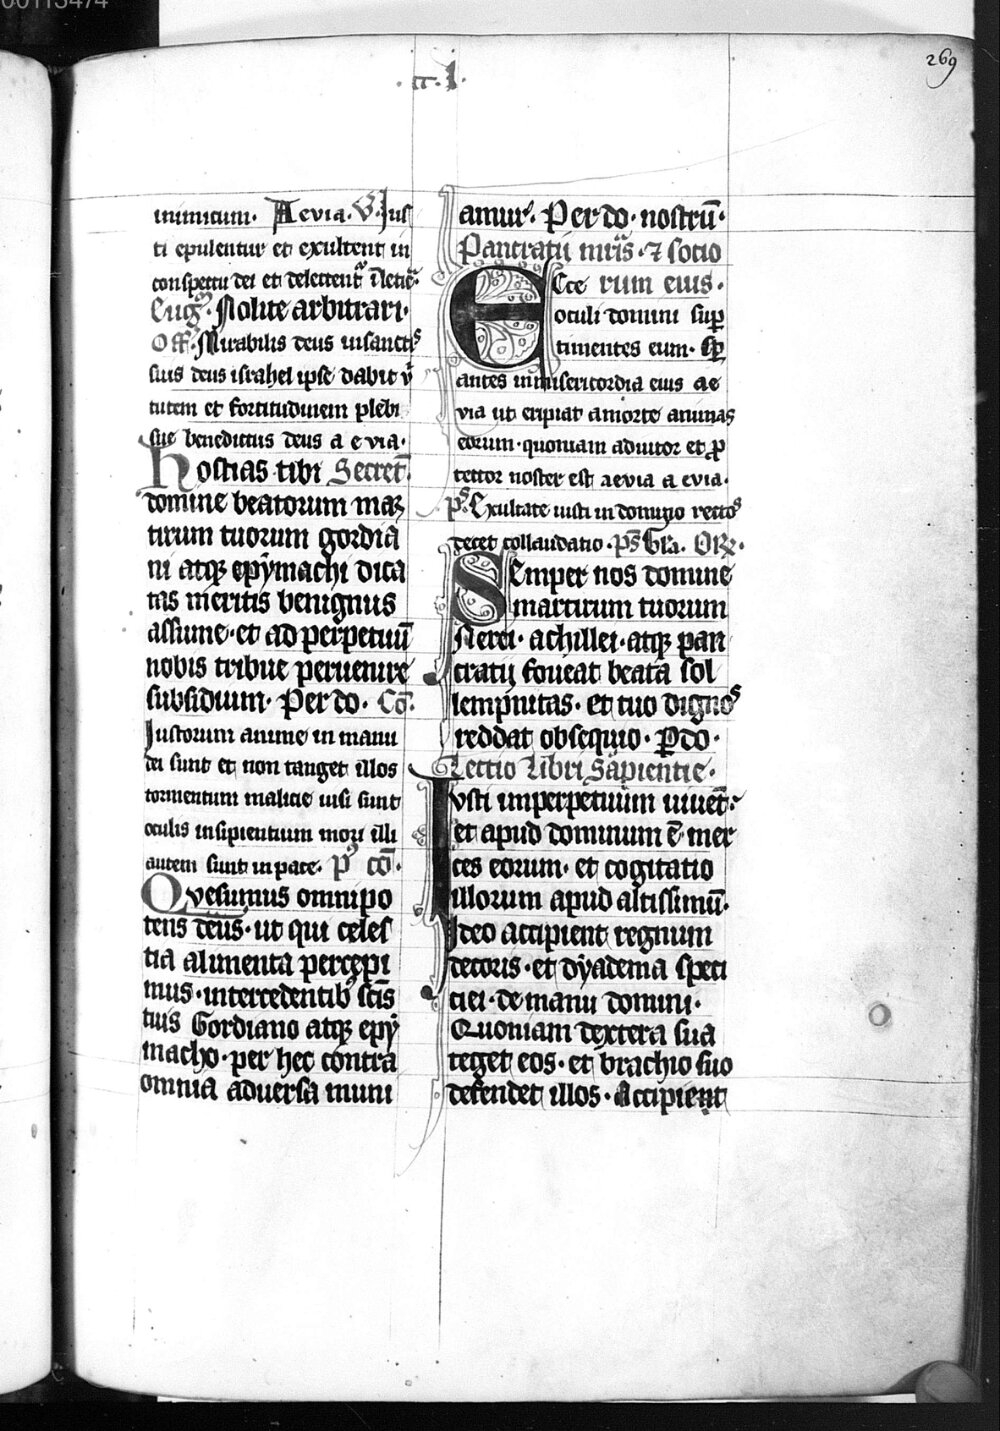 00113474
269
.cc.l.
inimicum. Aevia. V. Jus
ti epulentur et exultent in
conspectu dei et delectent̄ ī leticᵃ.
Euḡ. Nolite arbitrari.
Off. Mirabilis deus in sanctis
suis deus israhel ipse dabit vi᷑
tutem et fortitudinem plebi
sue benedictus deus a e via.
Hostias tibi Secret̄.
domine beatorum mar
tirum tuorum gordia
ni atqꝫ epymachi dica
tas meritis benignus
assume. et ad perpetuū
nobis tribue pervenire
subsidium. Per do. Cō.
Justorum anime in manu
dei sunt et non tanget illos
tormentum malicie visi sunt
oculis insipientium mori illi
autem sunt in pace. pꝰ cō.
Quesumus omnipo
tens deus. ut qui celes
tia alimenta percepi
mus. intercedentibꝰ scīs
tuis Gordiano atqꝫ epy
macho. per hec contra
omnia adversa muni
amur. Per do. nostrū.
Pancratij mr̄is. ⁊ socio
Ecce rum eius.
oculi domini suꝑ
timentes eum. sꝑ
antes in misericordia eius ae
via ut eripiat a morte animas
eorum. quoniam adiutor et ꝓ
tector noster est aevia a evia.
pˢ. Exultate iusti in domino rectoˢ
decet collaudatio. pˢ Gla. Oꝛꝝ.
Semper nos domine
martirum tuorum
Nerei. achillei. atqꝫ pan
cratij foveat beata sol
lempnitas. et tuo dignoˢ
reddat obsequio. ꝑ do.
Lectio libri Sapientie.
Iusti imperpetuum vivēt.
et apud dominum ē mer
ces eorum. et cogitatio
illorum apud altissimū.
Ideo accipient regnum
decoris. et dyadema speci
ei. de manu domini.
Quoniam dextera sua
teget eos. et brachio suo
defendet illos. Accipient